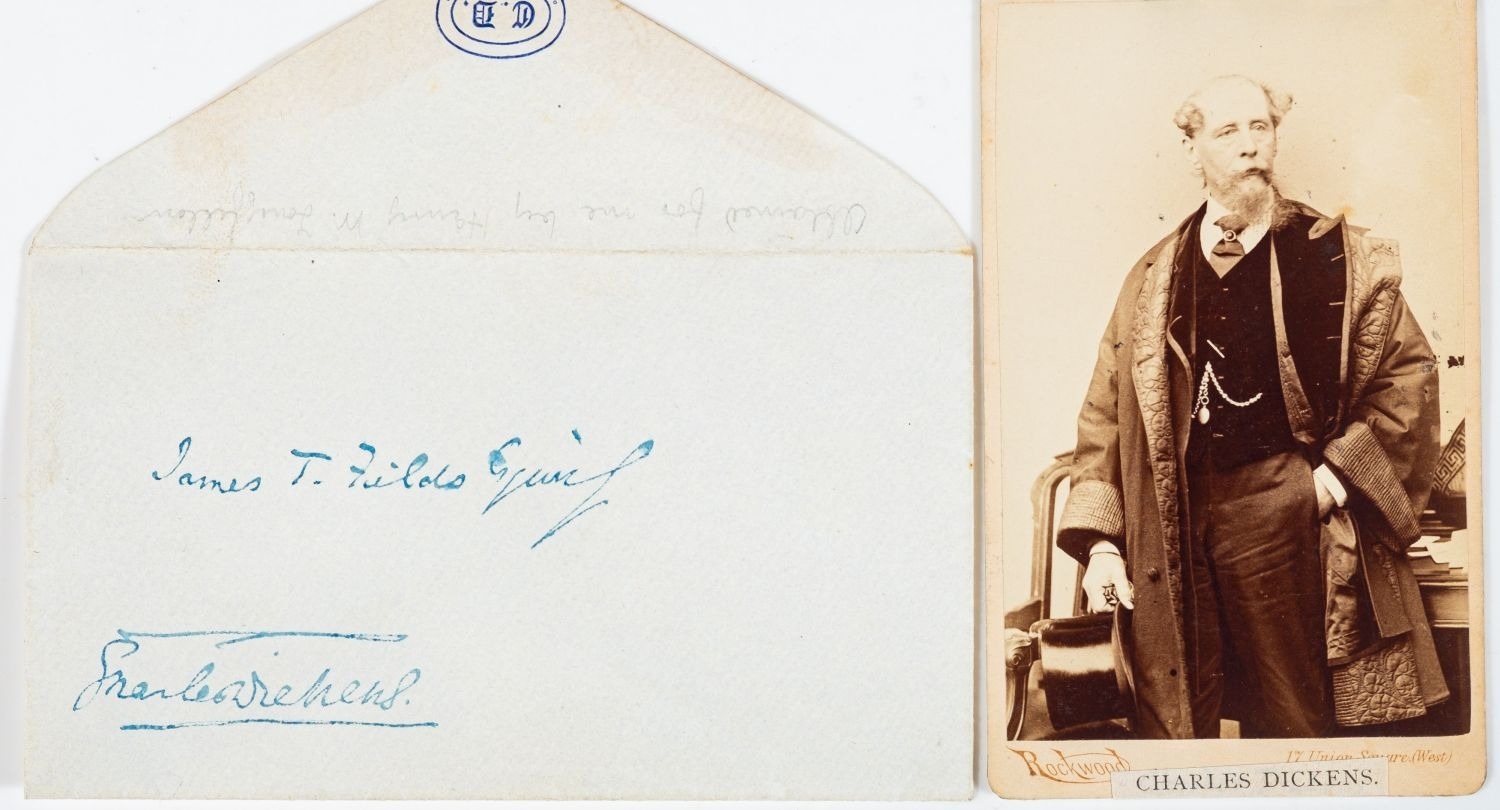 C.D.
Obtained for me by Henry W. Longfellow
James T. Fields Esquire
Charles Dickens.
Rockwood
17 Union Square (West)
CHARLES DICKENS.